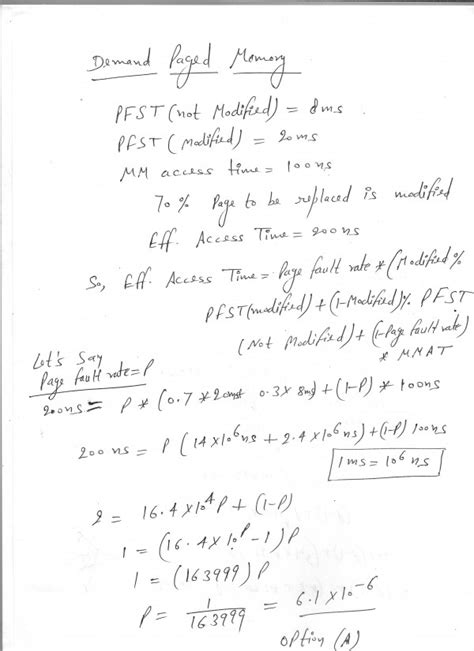 Demand Paged Momory
PFST (not Modified) = 8ms
PFST (modified) = 20ms
MM access time = 100ns
70% Page to be replaced is modified
Eff. Access Time = 200ns
So, Eff. Access Time = Page fault rate * (Modified %
PFST(modified) + (1-Modified)% PFST
(Not Modified) + (1-Page fault rate)
* MMAT
Let's Say
Page fault rate = P
200ns = P * (0.7 * 20ms 0.3 X 8ms) + (1-P) * 100ns
200 ns = P (14 X 10⁶ ns + 2.4 X 10⁶ ns) + (1-P) 100ns
1ms = 10⁶ ns
2 = 16.4 X 10⁴ P + (1-P)
1 = (16.4 X 10⁴ - 1) P
1 = (163999) P
P = 1/163999 = 6.1 X 10⁻⁶
Option (A)